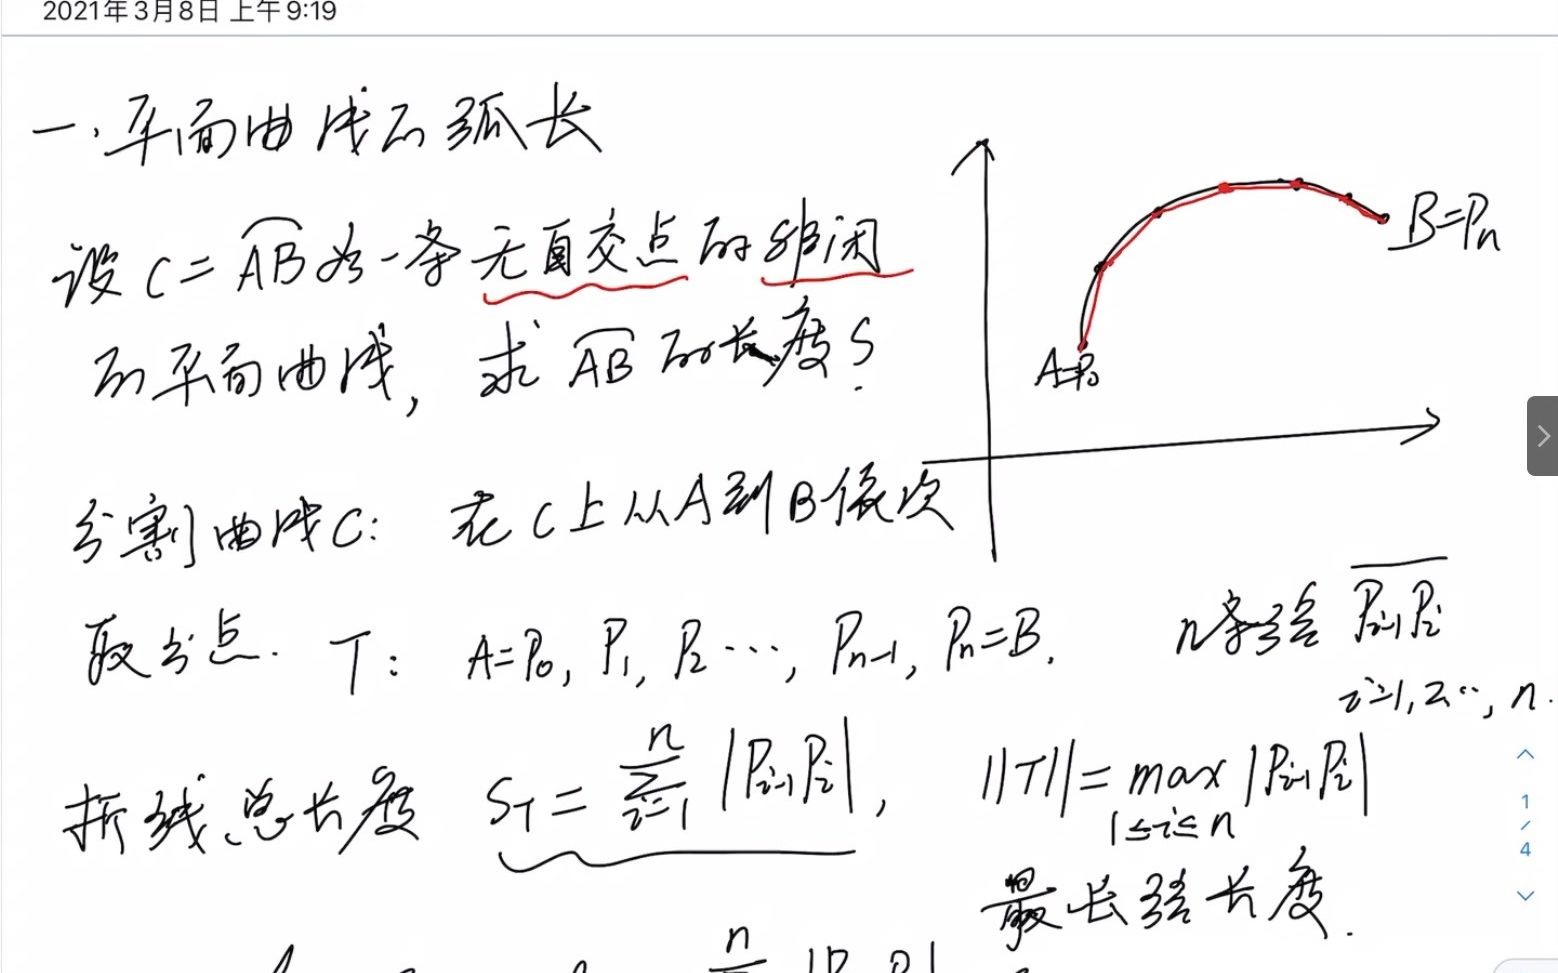 2021年3月8日 上午9:19
一.平面曲线的弧长
设 C = \overset{\frown}{AB} 为一条无自交点的非闭
的平面曲线, 求 \overset{\frown}{AB} 的长度 S.
A=P₀
B=Pₙ
分割曲线C: 在C上从A到B依次
取分点. T: A=P₀, P₁, P₂ ⋯, Pₙ₋₁, Pₙ=B.
n条弦 \overline{P_{i-1}P_i}
i=1,2,⋯,n.
折线总长度 S_T = \sum_{i=1}^{n} |P_{i-1}P_i|, ||T|| = \max_{1≤i≤n} |P_{i-1}P_i|
最长弦长度.
1/4